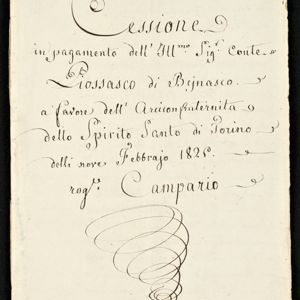 Cessione
in pagamento dell' Ill.mo Sig.r Conte
Piossasco di Bejnasco
a favore dell' Arciconfraternita
dello Spirito Santo di Torino
delli nove Febbrajo 1821.
rog.e Campario